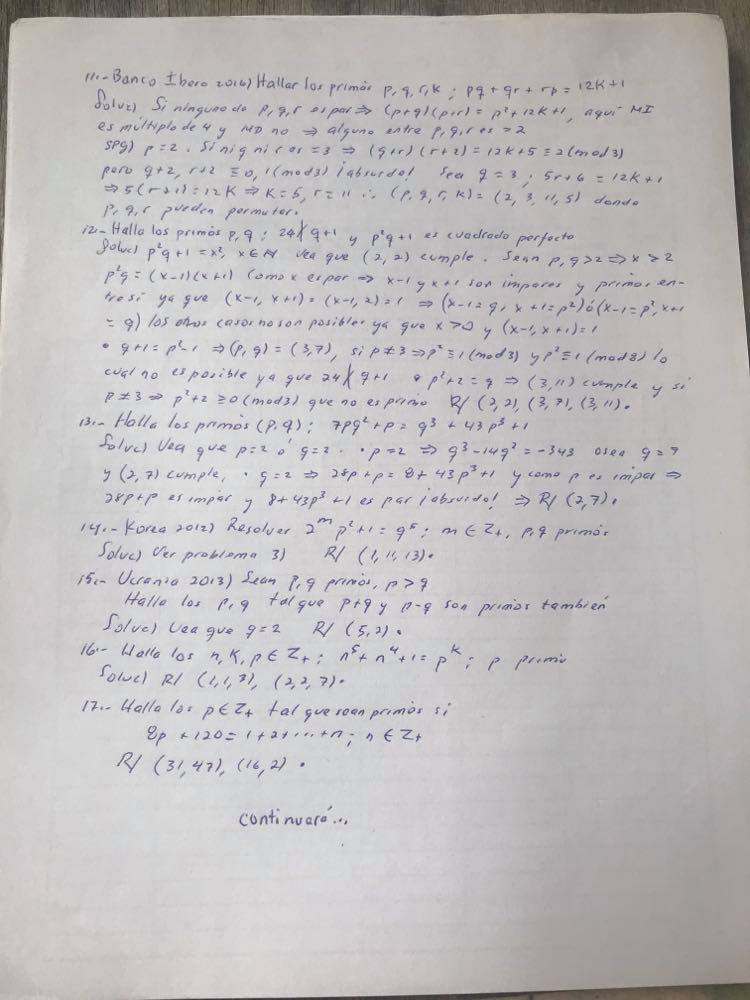 11.- Banco Ibero 2016) Hallar los primos p, q, r, k ; pq + qr + rp = 12k+1
Soluc) Si ninguno de p, q, r es par ⇒ (p+q)(p+r) = p²+12k+1, aquí MI
es múltiplo de 4 y MD no ⇒ alguno entre p, q, r es = 2
SPG) p=2. Si ni q ni r es =3 ⇒ (q+r)(r+2) = 12k+5 ≡ 2(mod 3)
pero q+2, r+2 ≡ 0, 1(mod 3) ¡absurdo! Sea q = 3 ; 5r+6 = 12k+1
⇒ 5(r+1) = 12k ⇒ k=5, r=11 ∴ (p, q, r, k) = (2, 3, 11, 5) donde
p, q, r pueden permutar.
12.- Halla los primos p, q ; 24∤q+1 y p²q+1 es cuadrado perfecto
Soluc) p²q+1 = x², x∈N Vea que (2, 2) cumple. Sean p, q>2 ⇒ x>2
p²q = (x-1)(x+1) Como x es par ⇒ x-1 y x+1 son impares y primos en-
tre si ya que (x-1, x+1) = (x-1, 2) = 1 ⇒ (x-1 = q, x+1 = p²) ó (x-1 = p², x+1
= q) los otros casos no son posibles ya que x>0 y (x-1, x+1)=1
• q+1 = p²-1 ⇒ (p, q) = (3, 7), si p≠3 ⇒ p² ≡ 1(mod 3) y p² ≡ 1(mod 8) lo
cual no es posible ya que 24∤q+1 • p²+2 = q ⇒ (3, 11) cumple y si
p≠3 ⇒ p²+2 ≡ 0(mod 3) que no es primo R/ (2, 2), (3, 7), (3, 11).
13.- Halla los primos (p, q) ; 7pq²+p = q³ + 43p³+1
Soluc) Vea que p=2 ó q=2. • p=2 ⇒ q³-14q² = -343 o sea q=7
y (2, 7) cumple, • q=2 ⇒ 28p+p = 8+43p³+1 y como p es impar ⇒
28p+p es impar y 8+43p³+1 es par ¡absurdo! ⇒ R/ (2, 7).
14.- Korea 2012) Resolver 2ᵐp²+1 = q⁵ ; m∈Z₊, p, q primos
Soluc) Ver problema 3) R/ (1, 11, 13).
15.- Ucrania 2013) Sean p, q primos, p>q
Halla los p, q tal que p+q y p-q son primos también
Soluc) Vea que q=2 R/ (5, 2).
16.- Halla los n, k, p∈Z₊ ; n⁵+n⁴+1 = pᵏ ; p primo
Soluc) R/ (1, 1, 3), (2, 2, 7).
17.- Halla los p∈Z₊ tal que sean primos si
8p + 120 = 1+2+...+n ; n∈Z₊
R/ (31, 47), (16, 2) .
continuará...